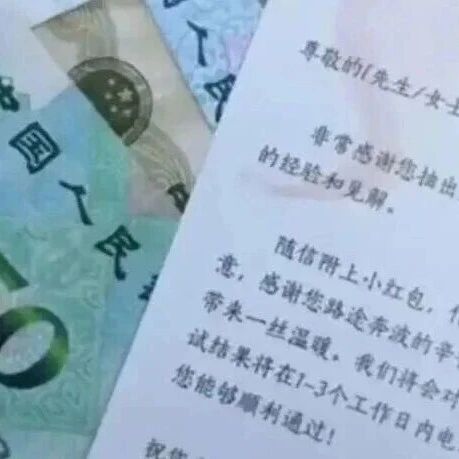 中国人民
国人民
尊敬的[先生/女士
非常感谢您抽出
的经验和见解。
随信附上小红包，代
意，感谢您路途奔波的辛
带来一丝温暖。我们将会对
试结果将在1-3个工作日内电
您能够顺利通过！
祝您